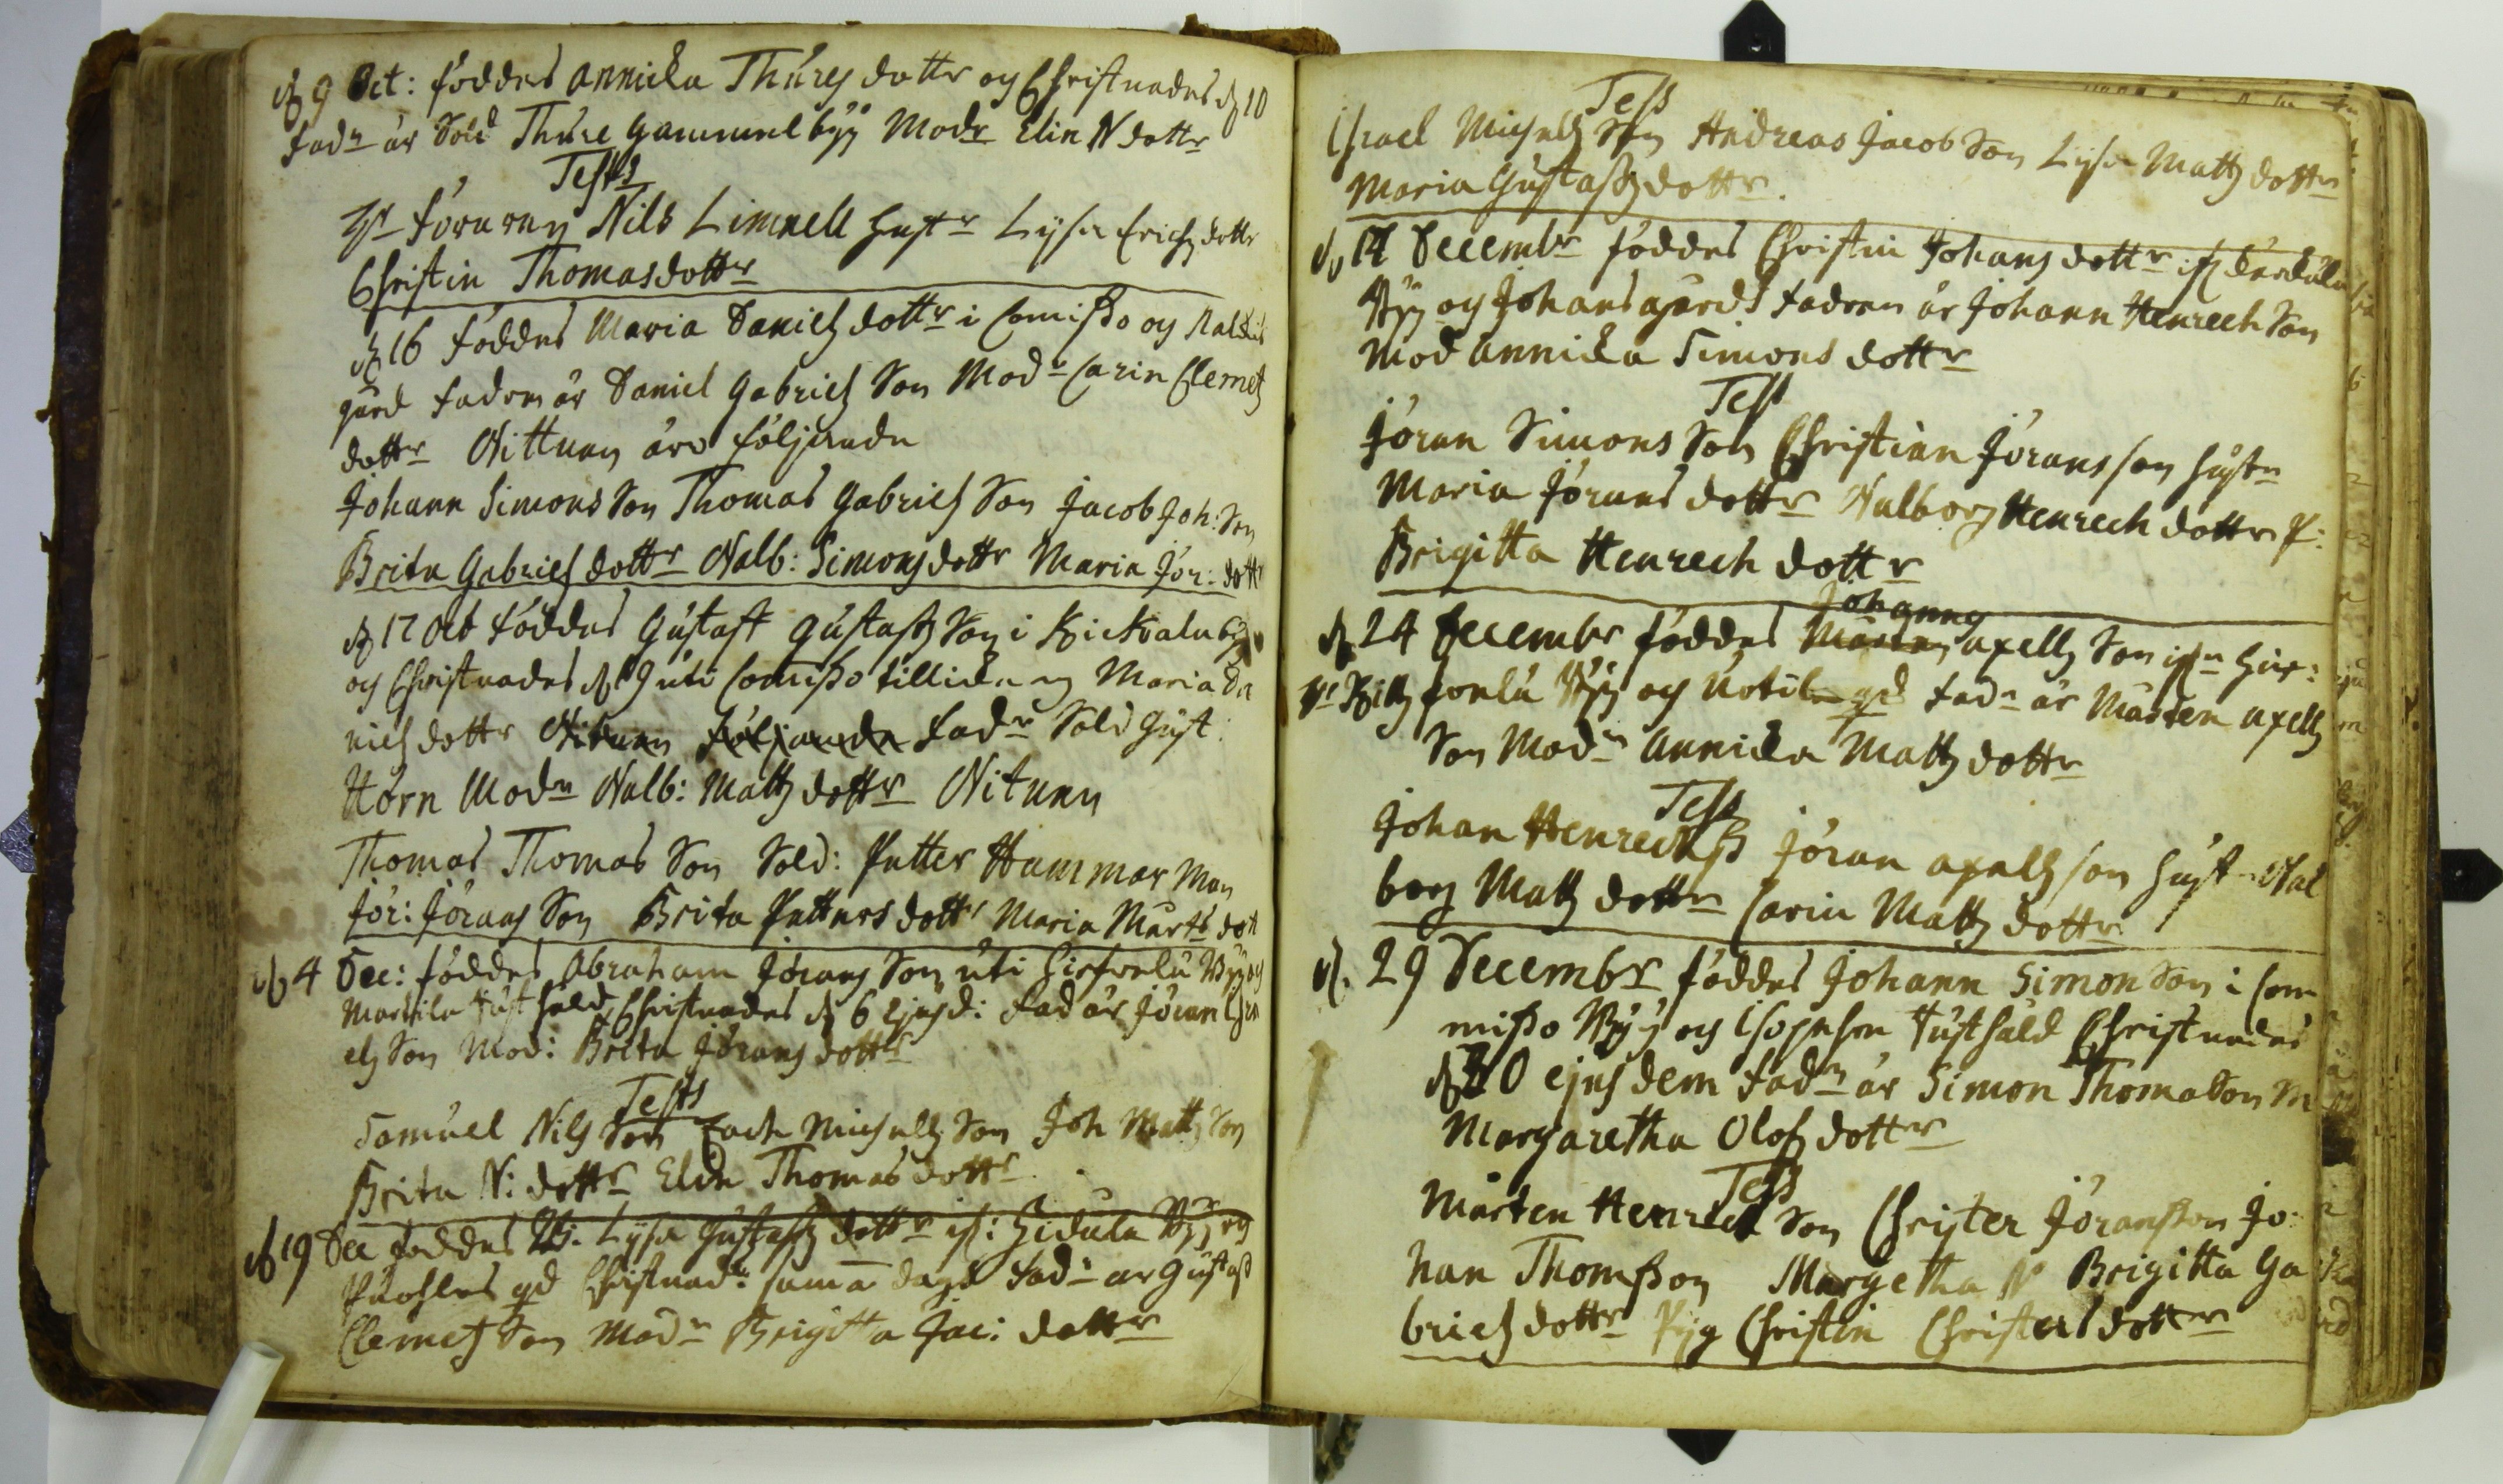 d 9 Oct: föddes Annicka Thures dottr och Christnades d 10
Fadn är Sold Thure Gammelbÿÿ Modr Elin N dottr
Tests
Nils Limnell hustr Lysa Erichs dottr
Christin Thomasdottr
d 16 föddes Maria Daniels dottr i Comisso og
gård fadren är Daniel Gabriels Son Modr Carin Clemets
dottr Wittnen äro följande
Johann Simons Son Thomas Gabriels Son Jacob Joh: Son
Brita Gabriels dottr Walb: Simons dottr Maria Jör: dottr
d 17 Oct föddes Gustaff Gustaffs Son i
og Christnades d 19 uti Comisso tillicka m Maria Da
niels dottr Witnen följande Fadr Sold Gust:
Hörn Modn Walb: Matts dottr Witnen
Thomas Thomas Son Sold: Petter Hammar Man
Jör: Jörans Son Brita Petters dottr Maria Mårts dott
d 4 Dec: föddes Abraham Jörans Son uti Bÿÿ og
Marttila Christnades d 6 Ejusd: Fad är Jöran Isra
els Son Mod: Brita Jörans dottr
Tests
Samuel Nils Son Zach Michells Son Joh Matts Son
Brita N: dottr Elin Thomas dottr
d 19 Dec föddes Lysa Gustaffs dottr if: Bÿÿ og
gd Christnad: samma dagh Fadn är Gustaff
Clemets Son Modn Brigitta Jac: dottr
Tess
Israel Michells Son Andreas Jacob Son Lysa Matts dottr
Maria Gustaffs dottr.
d 14 Decembr föddes Christin Johans dottr if
Bÿÿ og Johans gård Fadren är Johann Henrech Son
Mod Annicka Simons dottr
Test
Jöran Simons Son Christian Jöransson hustr
Maria Jörans dottr Walborg Henrech dottr P:
Brigitta Henrech dottr
Johanns
d 24 Decembr föddes Mårten Axells Son
Bÿÿ og gd Fadn är Mårten Axells
Son Modn Annicka Matts dottr
Tess
Johan Henrechss Jöran Axells son hust Wal
borg Matts dottr Carin Matts dottr
d. 29 Decembr föddes Johann Simon Son i Com
misso Bÿÿ og Christnades
d 30 ejusdem Fadn är Simon Thomason M
Margaretha Olofs dottr
Tess
Mårten Henrech Son Christer Jöransson Jo-
han Thomsson Margetha N Brigitta Ga
briels dottr Pig Christin Christersdottr